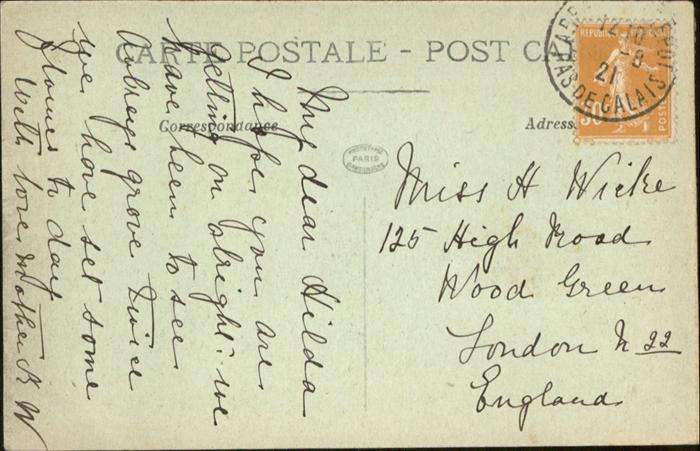 CARTE POSTALE - POST CA
Correspondance
Adress
PARIS
REPUBLIQUE
30
POSTES
21
PAS DE CALAIS
My dear Hilda
I hope you are
getting on alright. we
have been to see
Aubreys grove twice
we have set some
flowers to day
with love Mother K W
Miss H Wicke
125 High Road
Wood Green
London N 22
England